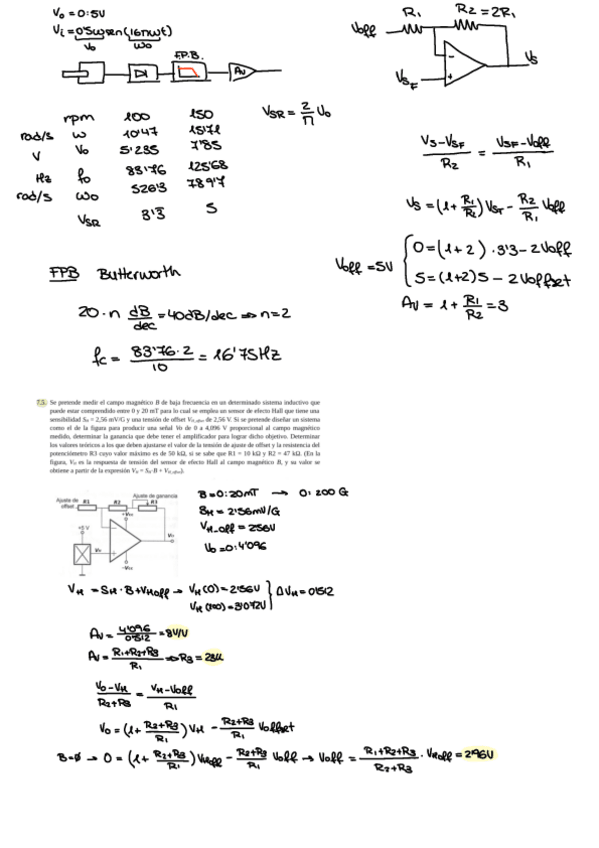 V₀ = 0÷5V
Vᵢ = 0'5ωsen(16πωt)
V₀ ω₀
F.P.B.
Av
VSR = 2/π V₀
rpm 100 150
rad/s ω 10'47 15'71
V V₀ 5'235 7'85
Hz f₀ 83'76 125'68
rad/s ω₀ 526'3 789'7
VSR 3'3 5
FPB Butterworth
20·n dB/dec = 40dB/dec ⇒ n=2
fc = 83'76·2/10 = 16'75Hz
R₁ R₂=2R₁
Voff
- VS
VSF +
VS-VSF/R₂ = VSF-Voff/R₁
VS = (1+ R₁/R₂) VSF - R₂/R₁ Voff
Voff = 5V { 0=(1+2)·3'3-2Voff
5=(1+2)5-2Voffset
Av = 1+ R₁/R₂ = 3
7.3. Se pretende medir el campo magnético B de baja frecuencia en un determinado sistema inductivo que
puede estar comprendido entre 0 y 20 mT para lo cual se emplea un sensor de efecto Hall que tiene una
sensibilidad S_H = 2,56 mV/G y una tensión de offset V_H,offset de 2,56 V. Si se pretende diseñar un sistema
como el de la figura para producir una señal Vo de 0 a 4,096 V proporcional al campo magnético
medido, determinar la ganancia que debe tener el amplificador para lograr dicho objetivo. Determinar
los valores teóricos a los que deben ajustarse el valor de la tensión de ajuste de offset y la resistencia del
potenciómetro R3 cuyo valor máximo es de 50 kΩ, si se sabe que R1 = 10 kΩ y R2 = 47 kΩ. (En la
figura, V_H es la respuesta de tensión del sensor de efecto Hall al campo magnético B, y su valor se
obtiene a partir de la expresión V_H = S_H·B + V_H,offset).
Ajuste de offset R1 R2 Ajuste de ganancia R3
+Vcc
+5 V
V_H Vo
-Vcc
B = 0÷20mT → 0÷200 G
S_H = 2'56mV/G
V_H-off = 2'56V
V₀ = 0÷4'096
V_H = S_H·B+V_Hoff → V_H(0) = 2'56V } ΔV_H = 0'512
V_H(200) = 3'072V
Av = 4'096/0'512 = 8V/V
Av = R₁+R₂+R₃/R₁ ⇒ R₃ = 23k
V₀-V_H/R₂+R₃ = V_H-Voff/R₁
V₀ = (1+ R₂+R₃/R₁) V_H - R₂+R₃/R₁ Voffset
B=ø → 0 = (1+ R₂+R₃/R₁) V_Hoff - R₂+R₃/R₁ Voff → Voff = R₁+R₂+R₃/R₂+R₃ · V_Hoff = 2'96V